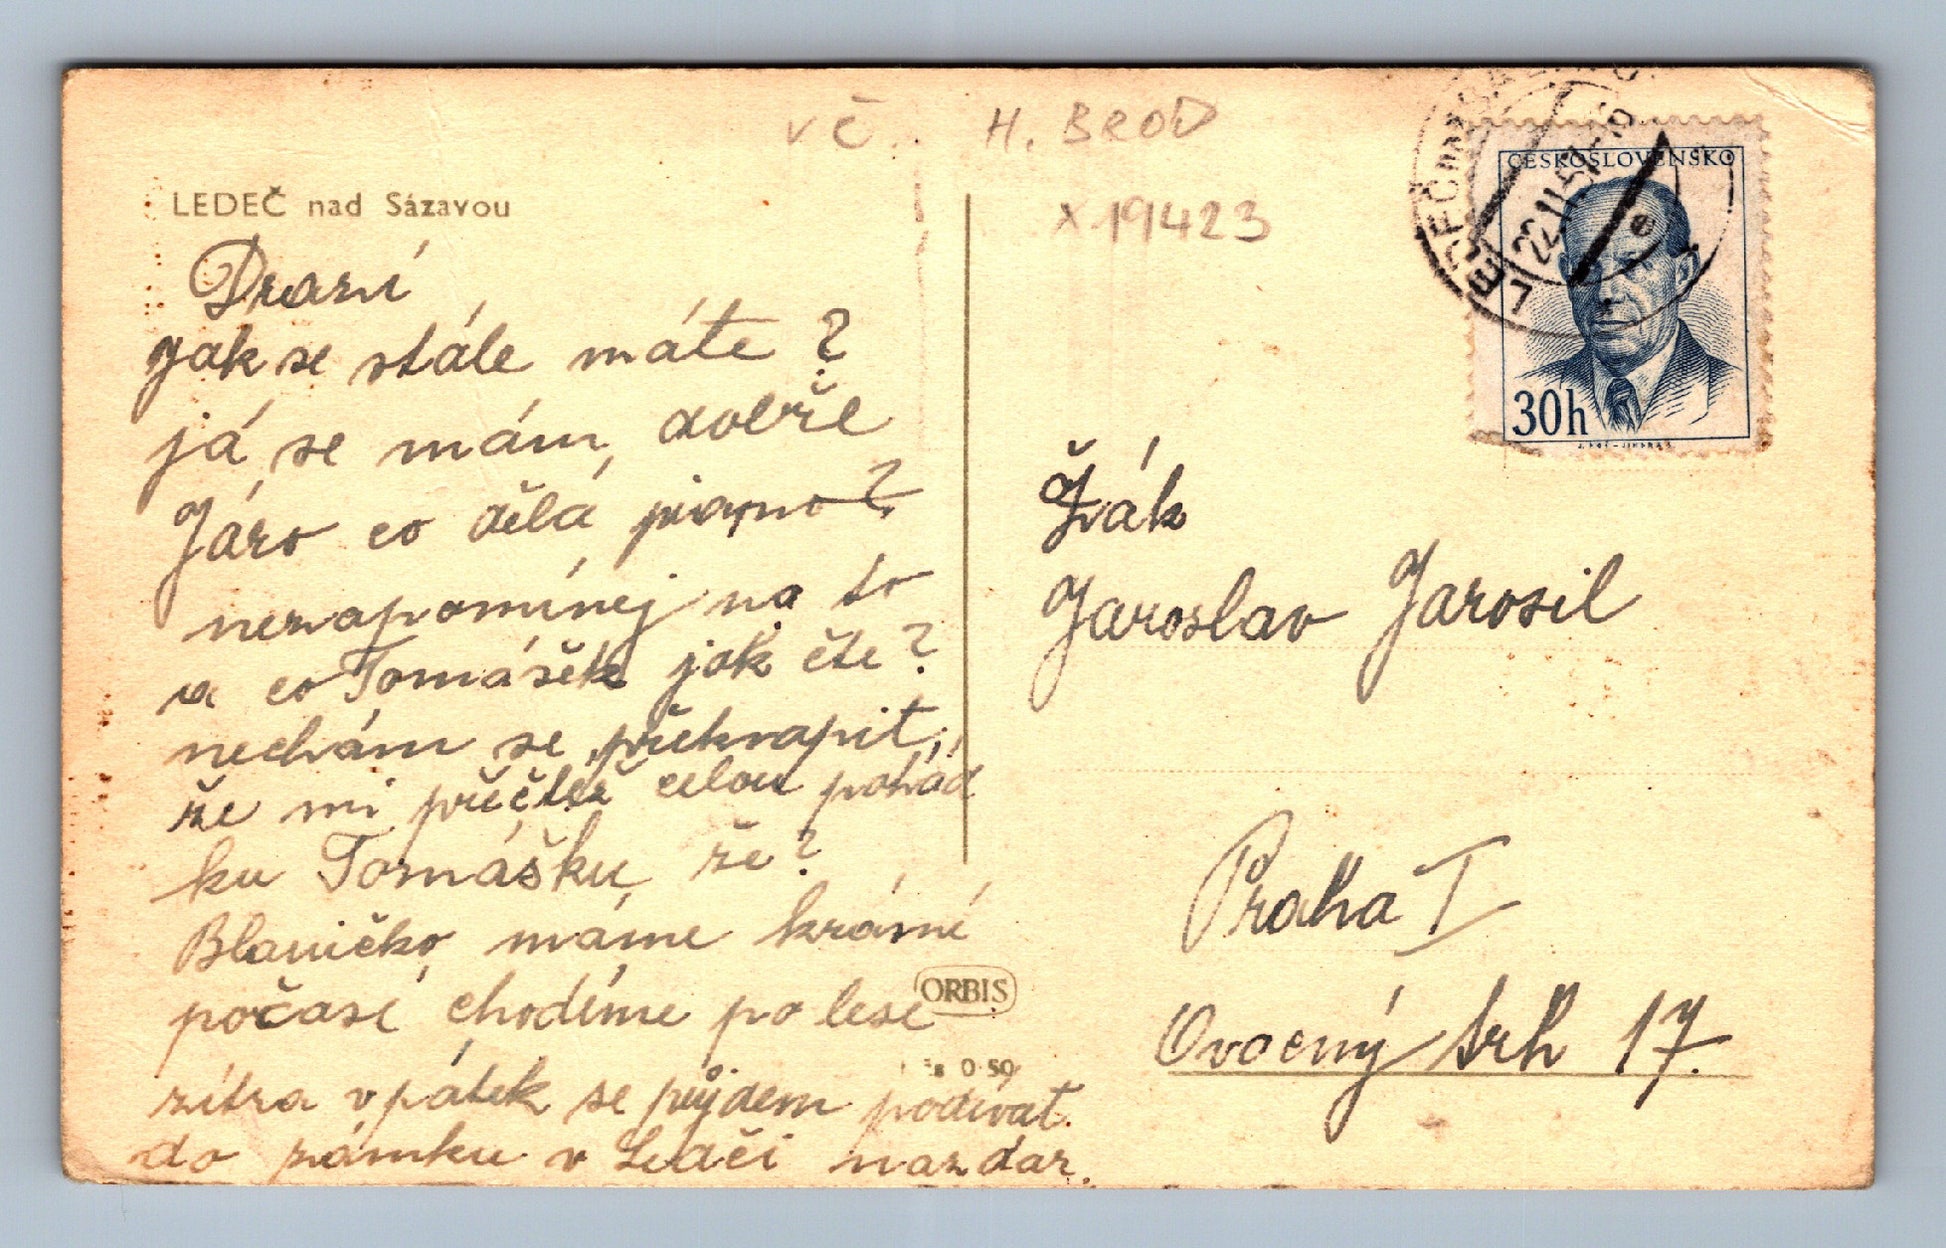 vč. H. BROD
x 19423
LEDEČ nad Sázavou
Drazí
jak se stále máte?
já se mám dobře
Járo co dělá piano?
nezapomínej na to
a co Tomášek jak čte?
nechám se překvapit,
že mi přečteš celou pohád
ku Tomášku že?
Blaničko máme krásné
počasí chodíme po lese
zítra v pátek se půjdem podívat
do zámku v Ledči nazdar.
ORBIS
0·50
ČESKOSLOVENSKO
30h
Žák
Jaroslav Jarosil
Praha I
Ovocný trh 17.